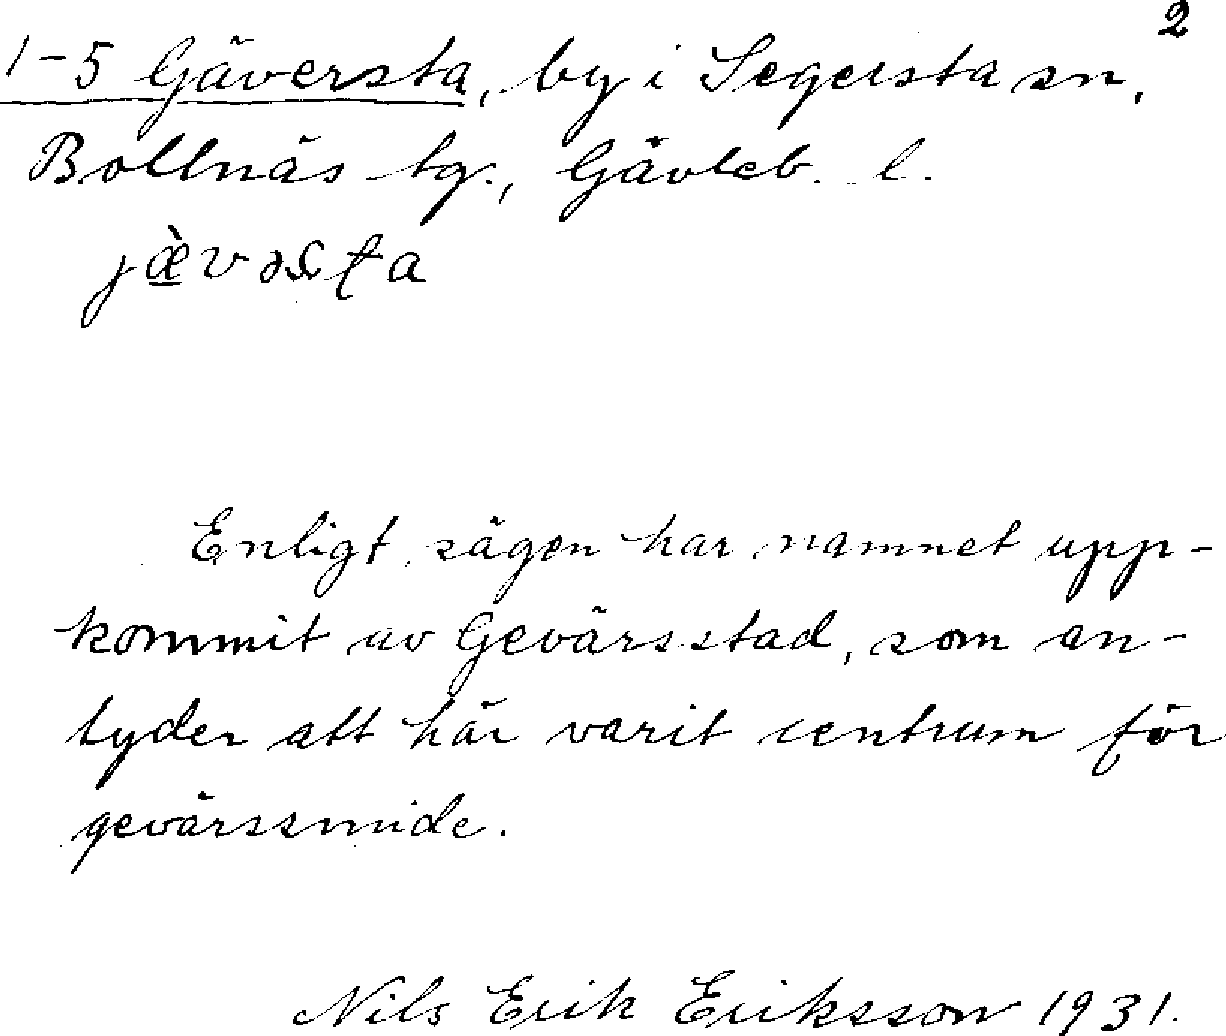 2
1-5 Gäversta, by i Segersta sn,
Bollnäs tg., Gävleb. l.
Enligt sägen har namnet upp-
kommit av Gevärsstad, som an-
tyder att här varit centrum för
gevärssmide.
Nils Erik Eriksson 1931.